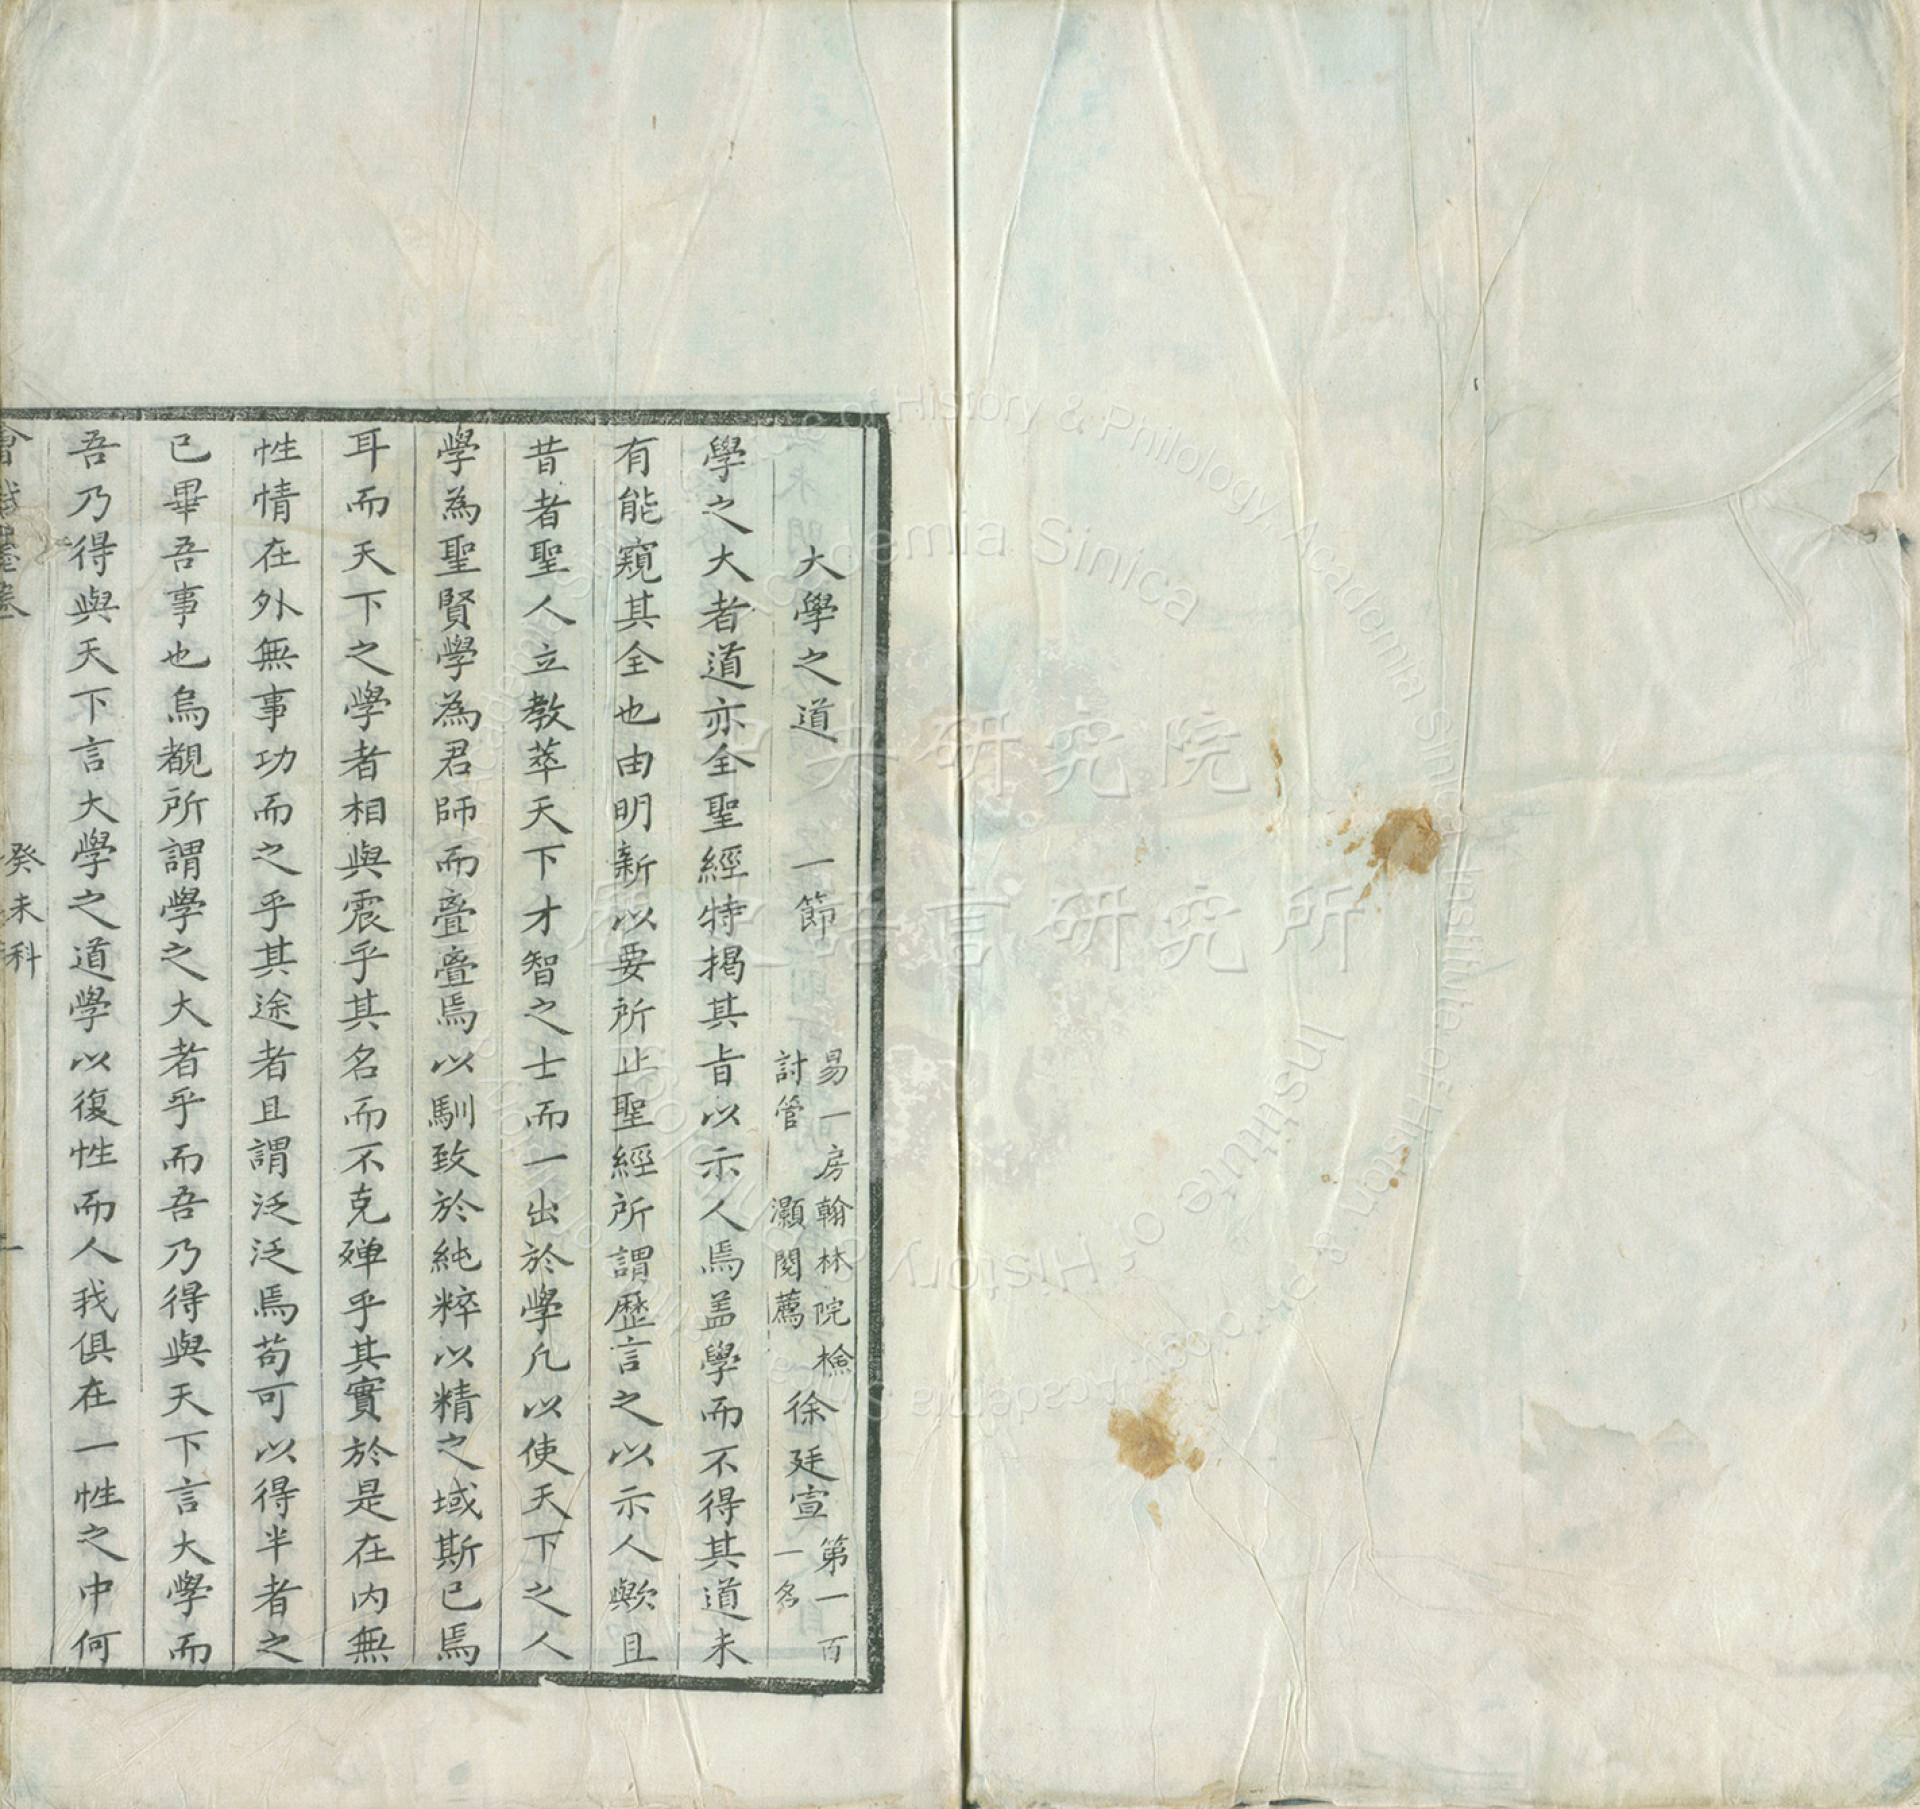 大學之道 一節 易一房翰林院檢討管灝閱薦 徐廷宣 第一百一名
學之大者道亦全聖經特揭其旨以示人焉盖學而不得其道未
有能窺其全也由明新以要所止聖經所謂歷言之以示人歟且
昔者聖人立教萃天下才智之士而一出於學凡以使天下之人
學為聖賢學為君師而亹亹焉以馴致於純粹以精之域斯已焉
耳而天下之學者相與震乎其名而不克殫乎其實於是在內無
性情在外無事功而之乎其途者且謂泛泛焉苟可以得半者之
已畢吾事也烏覩所謂學之大者乎而吾乃得與天下言大學而
吾乃得與天下言大學之道學以復性而人我俱在一性之中何
會試墨卷 癸未科 一
中央研究院
歷史語言研究所
Institute of History & Philology, Academia Sinica